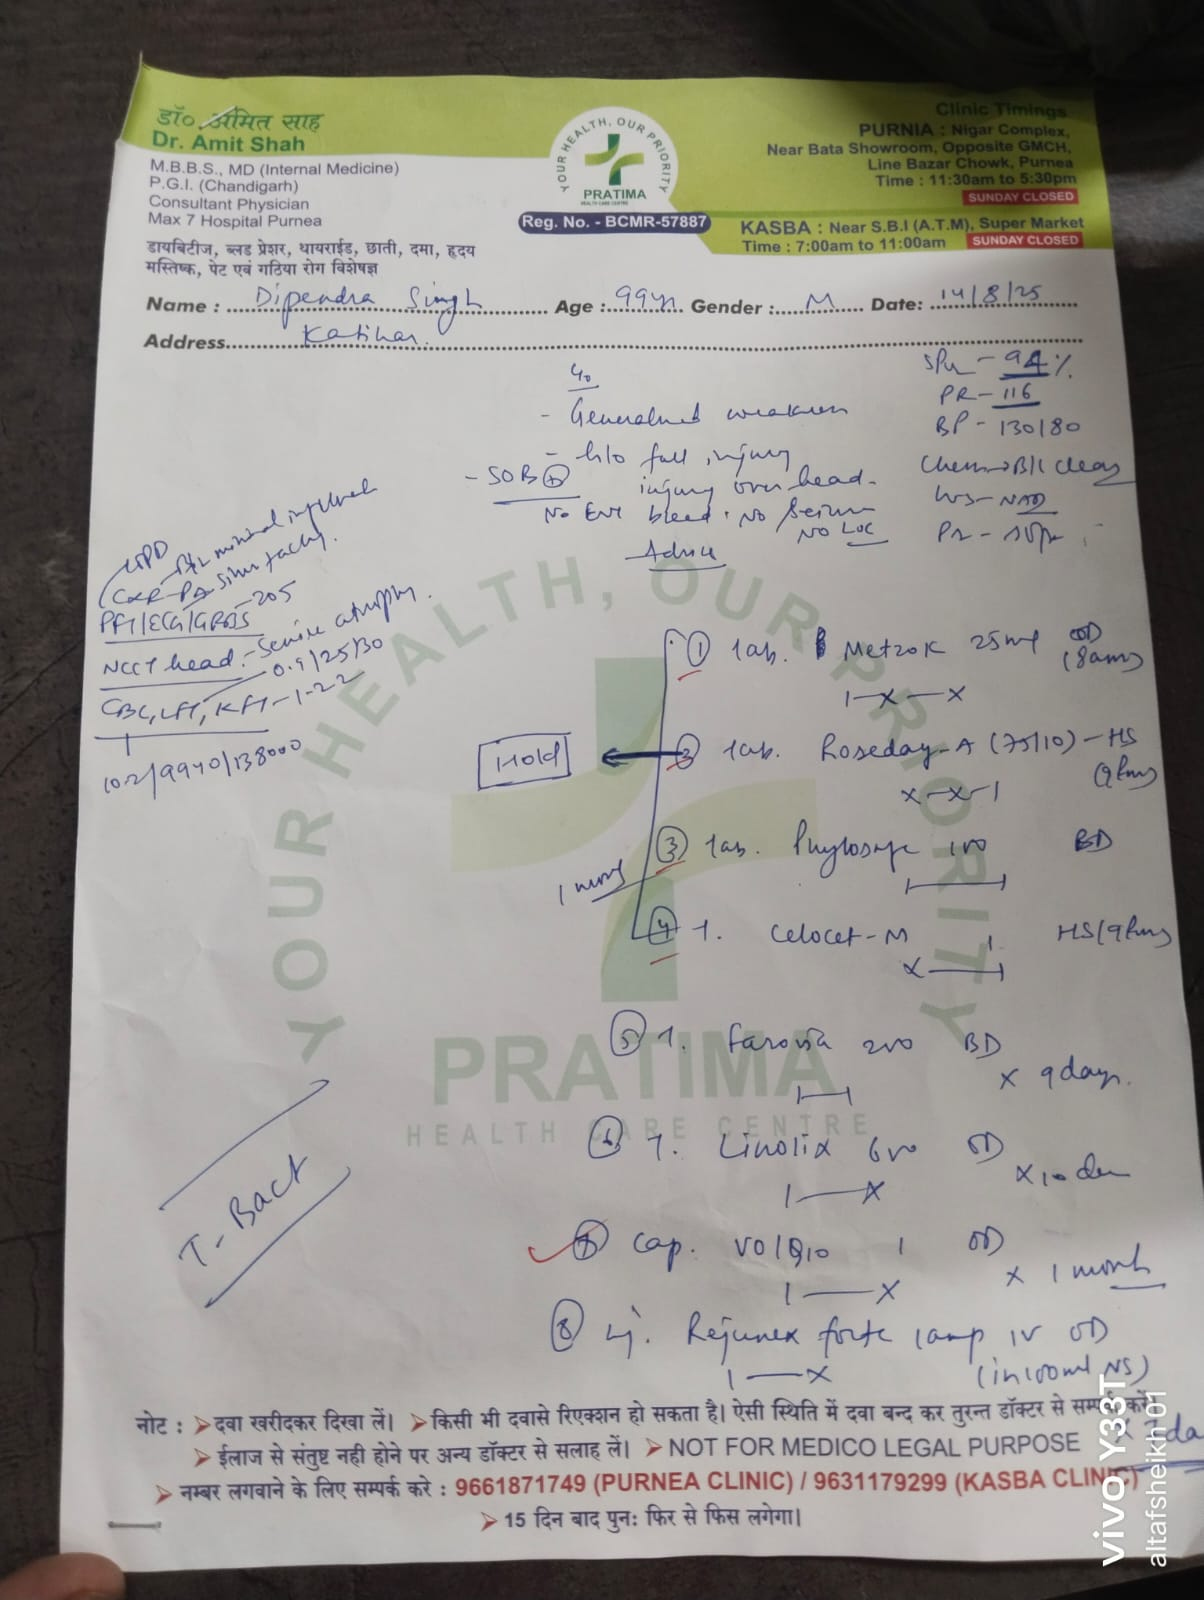 डॉ० अमित साह
Dr. Amit Shah
M.B.B.S., MD (Internal Medicine)
P.G.I. (Chandigarh)
Consultant Physician
Max 7 Hospital Purnea
डायबिटीज, ब्लड प्रेशर, थायराईड, छाती, दमा, हृदय
मस्तिष्क, पेट एवं गठिया रोग विशेषज्ञ
YOUR HEALTH, OUR PRIORITY
PRATIMA
HEALTH CARE CENTRE
Reg. No. - BCMR-57887
Clinic Timings
PURNIA : Nigar Complex,
Near Bata Showroom, Opposite GMCH,
Line Bazar Chowk, Purnea
Time : 11:30am to 5:30pm
SUNDAY CLOSED
KASBA : Near S.B.I (A.T.M), Super Market
Time : 7:00am to 11:00am SUNDAY CLOSED
Name : Dipendra Singh Age : 99yr Gender : M Date: 14/8/25
Address Katihar
- 94%
PR - 116
BP - 130/80
Chest → B/L clear
- NAD
- Generalised weakness
- h/o fall injury
- SOB ⊕
injury over head.
No ENT bleed. No Seizure
NO LOC
Advice
B/L
CXR-PA Sinus tachy.
PFT/ECG/GRBS - 205
NCCT head - Senile atrophy.
0.9/25/30
CBC, LFT, KFT - 1.22
10.2/9940/138000
① Tab. Metzok 25mg OD (8am)
1-x-x
Hold
② Tab. Roseday-A (75/10) - HS (9pm)
x-x-1
③ Tab. BD
1 month
④ T. Celocet-M HS/9pm
x 1
⑤ T. Farovia 200 BD
x 9 days.
⑥ T. Linolix 600 OD
x 10
1-x
⑦ Cap. VO/Q10 1 OD
x 1 month
1-x
⑧ Inj. Rejunex forte 1amp IV OD
(in 100ml NS)
1-x
T-Bact
YOUR HEALTH, OUR PRIORITY
PRATIMA
HEALTH CARE CENTRE
नोट : ➤दवा खरीदकर दिखा लें। ➤किसी भी दवासे रिएक्शन हो सकता है। ऐसी स्थिति में दवा बन्द कर तुरन्त डॉक्टर से सम्पर्क करें
➤ ईलाज से संतुष्ट नही होने पर अन्य डॉक्टर से सलाह लें। ➤ NOT FOR MEDICO LEGAL PURPOSE
➤ नम्बर लगवाने के लिए सम्पर्क करे : 9661871749 (PURNEA CLINIC) / 9631179299 (KASBA CLINIC)
➤ 15 दिन बाद पुनः फिर से फिस लगेगा।
vivo Y33T
altafsheikh101